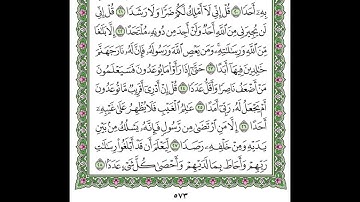 بِهِۦٓ أَحَدٗا ٢٠ قُلۡ إِنِّي لَآ أَمۡلِكُ لَكُمۡ ضَرّٗا وَلَا رَشَدٗا ٢١ قُلۡ إِنِّي
لَن يُجِيرَنِي مِنَ ٱللَّهِ أَحَدٞ وَلَنۡ أَجِدَ مِن دُونِهِۦ مُلۡتَحَدًا ٢٢ إِلَّا بَلَٰغٗا
مِّنَ ٱللَّهِ وَرِسَٰلَٰتِهِۦۚ وَمَن يَعۡصِ ٱللَّهَ وَرَسُولَهُۥ فَإِنَّ لَهُۥ نَارَ جَهَنَّمَ
خَٰلِدِينَ فِيهَآ أَبَدًا ٢٣ حَتَّىٰٓ إِذَا رَأَوۡاْ مَا يُوعَدُونَ فَسَيَعۡلَمُونَ
مَنۡ أَضۡعَفُ نَاصِرٗا وَأَقَلُّ عَدَدٗا ٢٤ قُلۡ إِنۡ أَدۡرِيٓ أَقَرِيبٞ مَّا تُوعَدُونَ
أَمۡ يَجۡعَلُ لَهُۥ رَبِّيٓ أَمَدًا ٢٥ عَٰلِمُ ٱلۡغَيۡبِ فَلَا يُظۡهِرُ عَلَىٰ غَيۡبِهِۦٓ
أَحَدًا ٢٦ إِلَّا مَنِ ٱرۡتَضَىٰ مِن رَّسُولٖ فَإِنَّهُۥ يَسۡلُكُ مِنۢ بَيۡنِ
يَدَيۡهِ وَمِنۡ خَلۡفِهِۦ رَصَدٗا ٢٧ لِّيَعۡلَمَ أَن قَدۡ أَبۡلَغُواْ رِسَٰلَٰتِ
رَبِّهِمۡ وَأَحَاطَ بِمَا لَدَيۡهِمۡ وَأَحۡصَىٰ كُلَّ شَيۡءٍ عَدَدَۢا ٢٨
٥٧٣